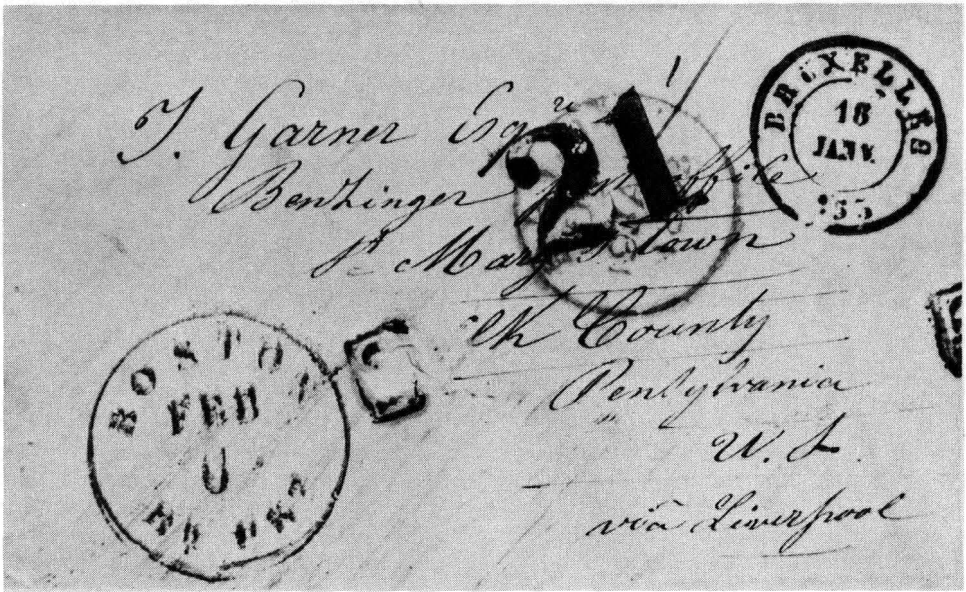 J. Garner Esqre
21
Bentzinger post office
St Mary's town
Elk County
Penlylvania
U. S.
via Liverpool
BRUXELLES
18
JANV.
53
BOSTON
FEB
BR PKT